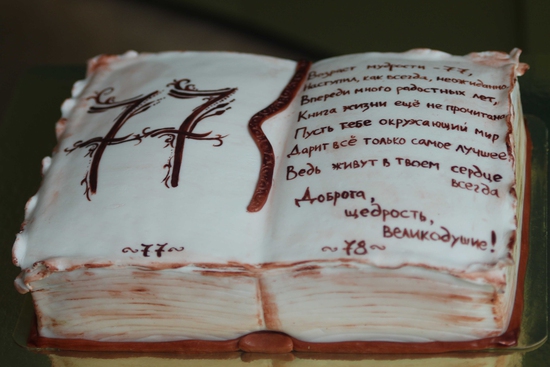 77
~77~
Возраст мудрости - 77,
Наступил, как всегда, неожиданно
Впереди много радостных лет,
Книга жизни ещё не прочитана
Пусть тебе окружающий мир
Дарит всё только самое лучшее,
Ведь живут в твоем сердце
всегда
Доброта,
щедрость,
великодушие!
~78~